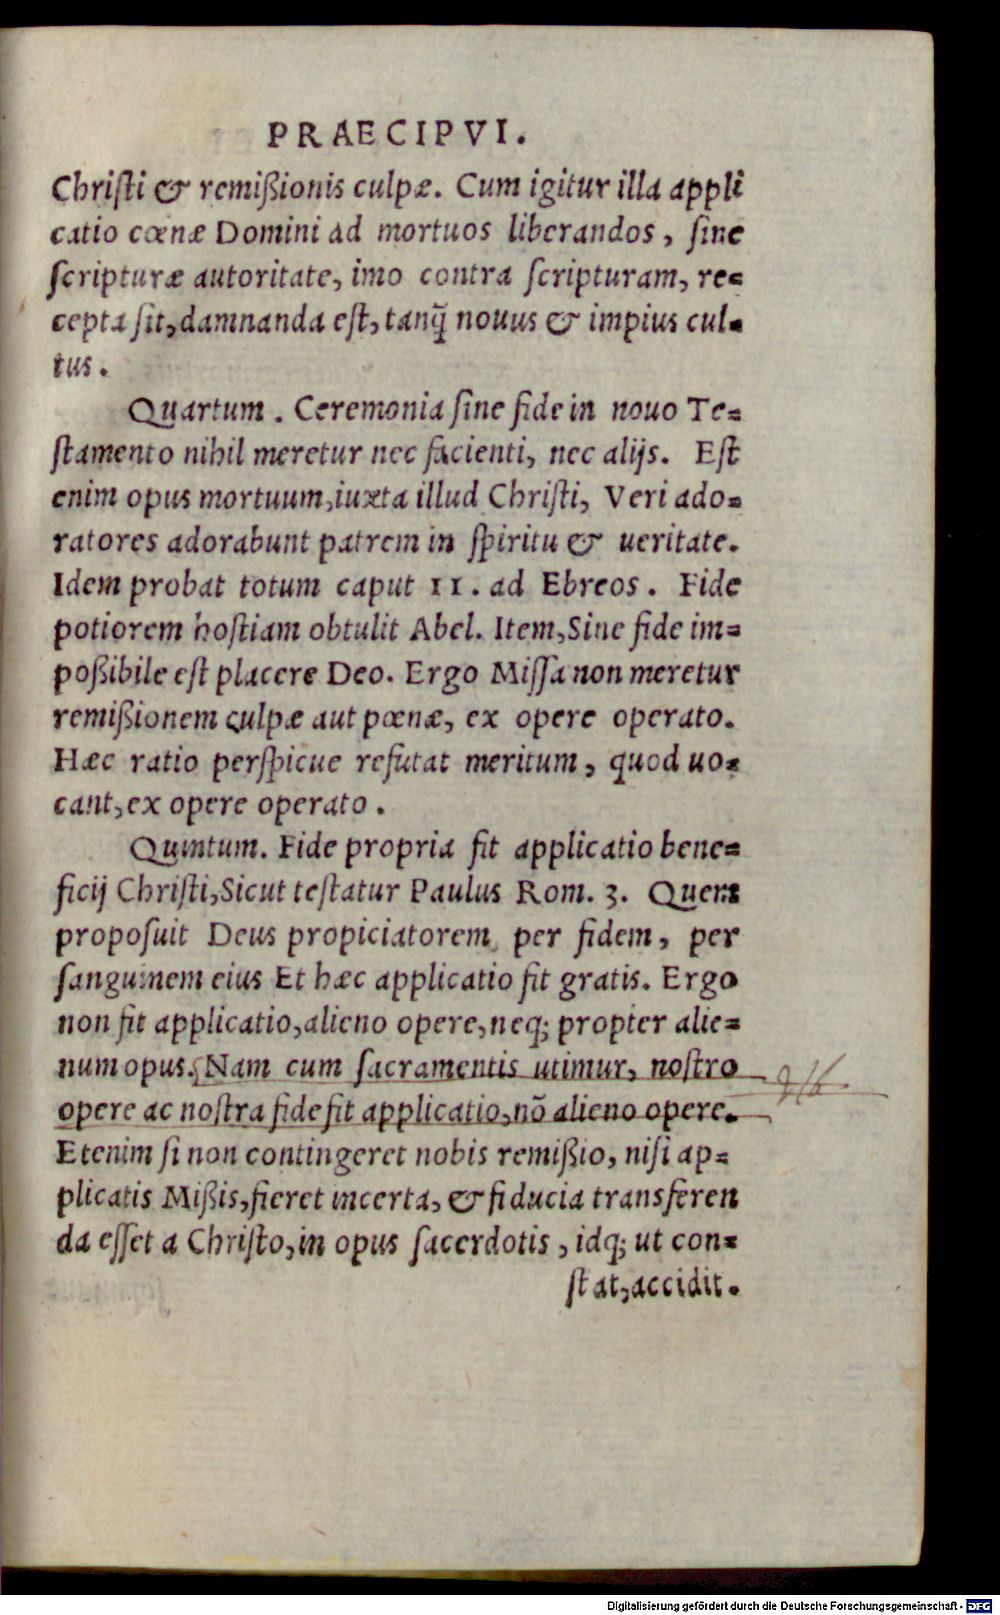 PRAECIPVI.
Chriſti & remißionis culpæ. Cum igitur illa appli
catio cœnæ Domini ad mortuos liberandos, ſine
ſcripturæ autoritate, imo contra ſcripturam, re=
cepta ſit, damnanda eſt, tanq̃ nouus & impius cul=
tus.
Quartum. Ceremonia ſine fide in nouo Te=
ſtamento nihil meretur nec facienti, nec alijs. Eſt
enim opus mortuum, iuxta illud Chriſti, Veri ado=
ratores adorabunt patrem in ſpiritu & ueritate.
Idem probat totum caput 11. ad Ebreos. Fide
potiorem hoſtiam obtulit Abel. Item, Sine fide im=
poßibile eſt placere Deo. Ergo Miſſa non meretur
remißionem culpæ aut pœnæ, ex opere operato.
Hæc ratio perſpicue refutat meritum, quod uo=
cant, ex opere operato.
Quintum. Fide propria fit applicatio bene=
ficij Chriſti, Sicut teſtatur Paulus Rom. 3. Quem
propoſuit Deus propiciatorem per fidem, per
ſanguinem eius Et hæc applicatio fit gratis. Ergo
non fit applicatio, alieno opere, neq; propter alie=
num opus. Nam cum ſacramentis utimur, noſtro
opere ac noſtra fide fit applicatio, nõ alieno opere.
Etenim ſi non contingeret nobis remißio, niſi ap=
plicatis Mißis, fieret incerta, & fiducia transferen
da eſſet a Chriſto, in opus ſacerdotis, idq; ut con=
ſtat, accidit.
Digitalisierung gefördert durch die Deutsche Forschungsgemeinschaft - DFG